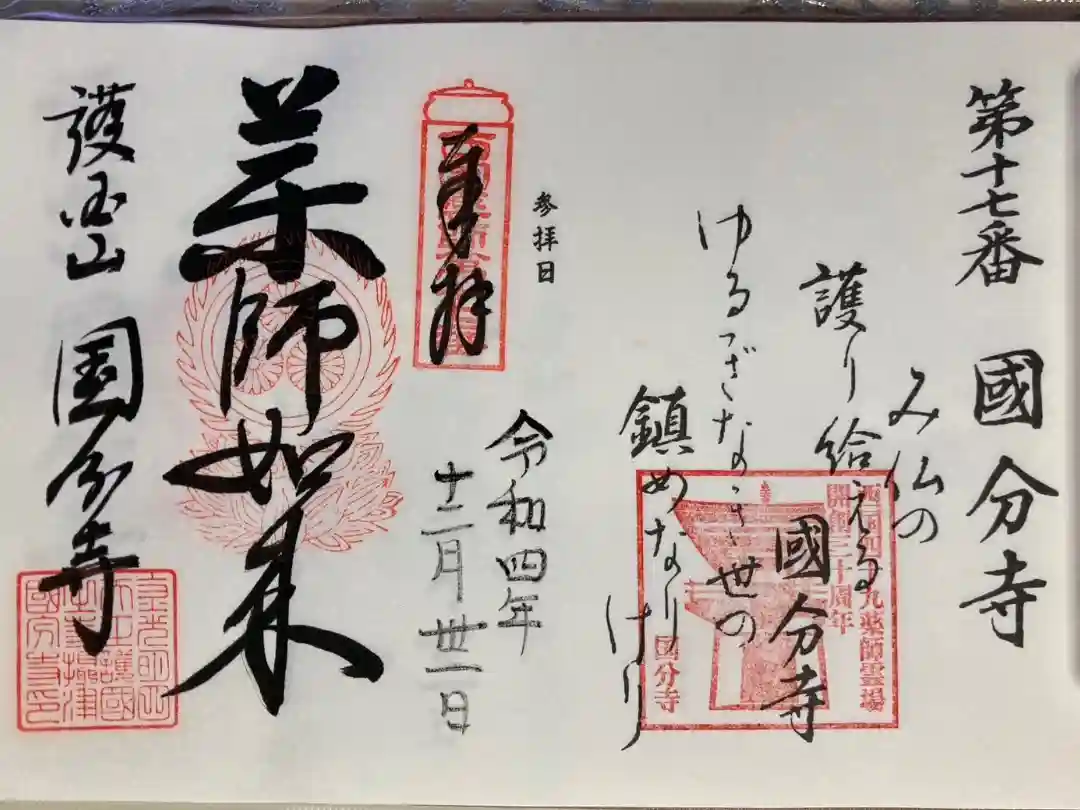 第十七番 國分寺
み仏の
護り給える
國分寺
ゆるぎなき世の
鎮めなりけり
西国四十九薬師霊場
開創三十周年
国分寺
参拝日
奉拝
令和四年
十二月卅一日
薬師如来
護国山 国分寺